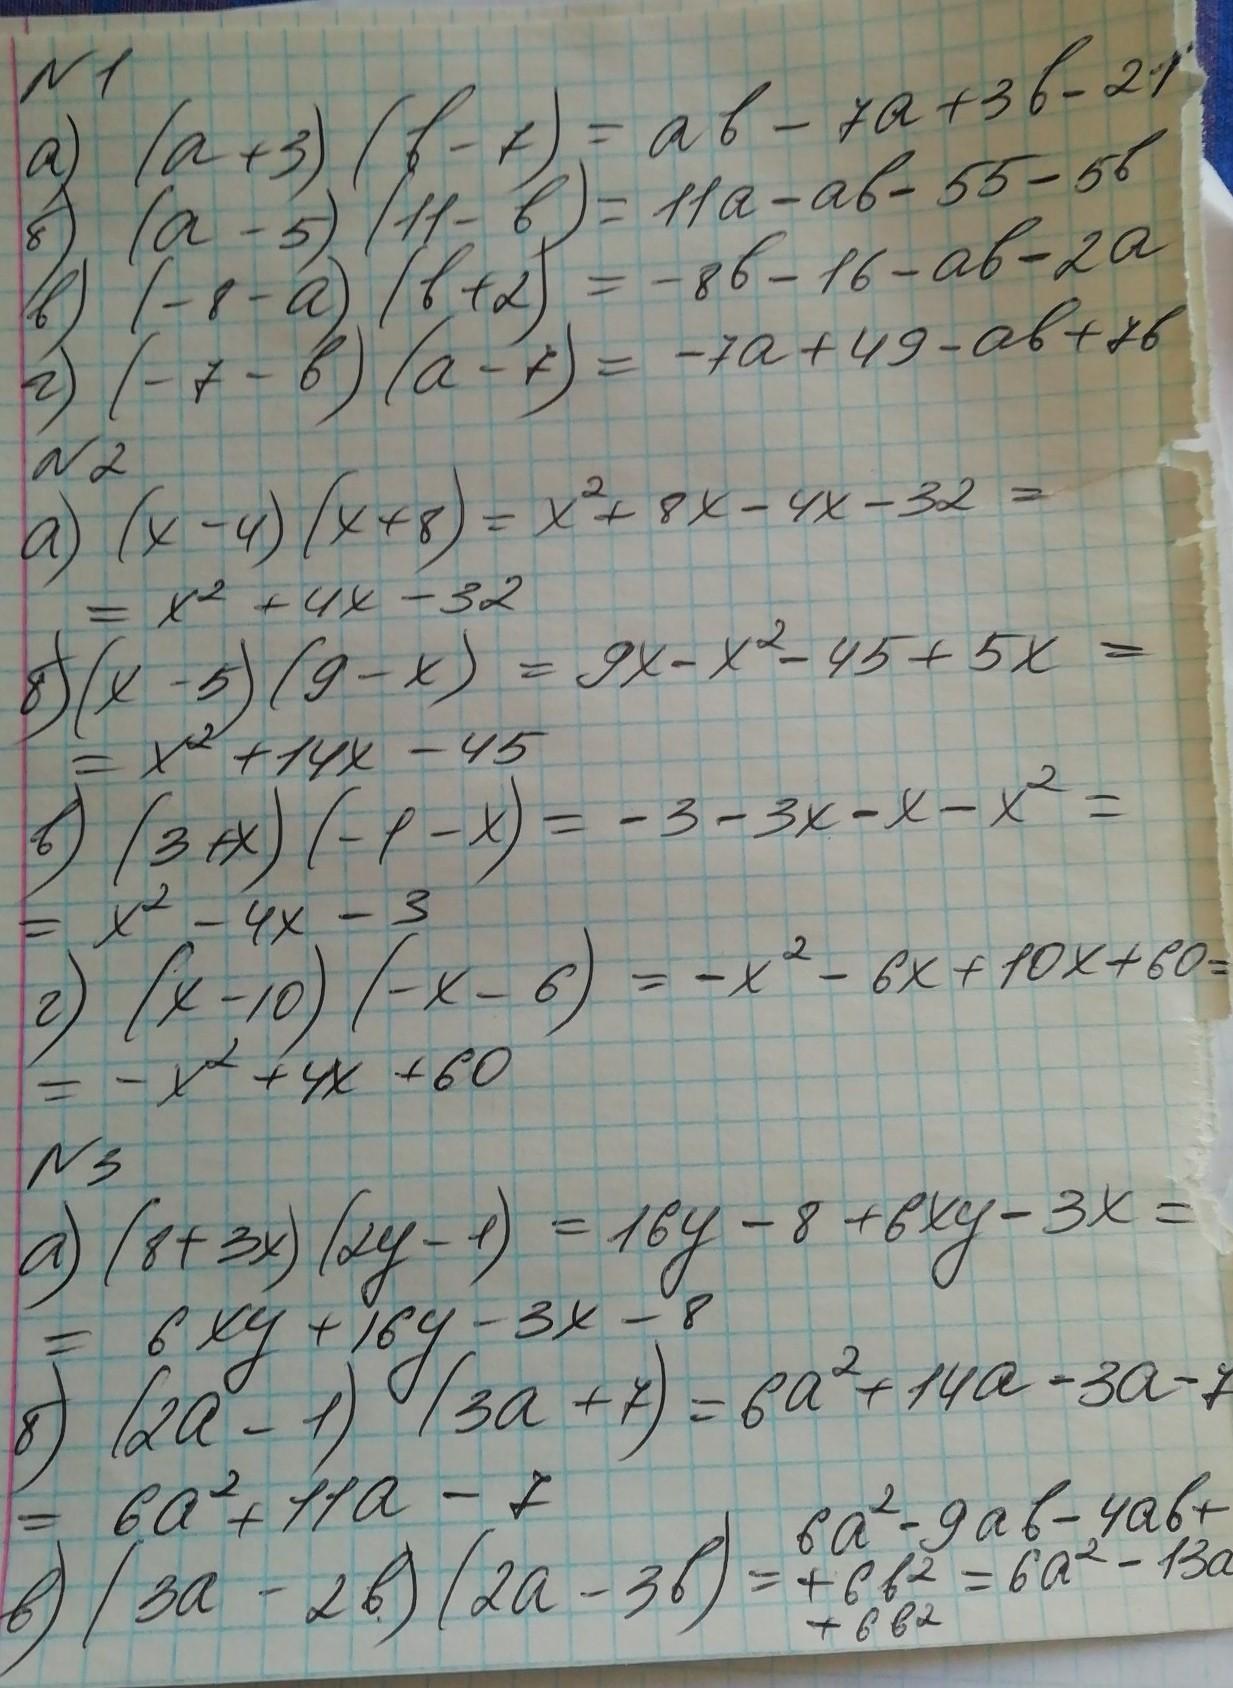 №1
а) (a+3)(b-7) = ab - 7a + 3b - 21
б) (a-5)(11-b) = 11a - ab - 55 - 5b
в) (-8-a)(b+2) = -8b - 16 - ab - 2a
г) (-7-b)(a-7) = -7a + 49 - ab + 7b
№2
а) (x-4)(x+8) = x² + 8x - 4x - 32 =
= x² + 4x - 32
б) (x-5)(9-x) = 9x - x² - 45 + 5x =
= x² + 14x - 45
в) (3+x)(-1-x) = -3 - 3x - x - x² =
= x² - 4x - 3
г) (x-10)(-x-6) = -x² - 6x + 10x + 60 =
= -x² + 4x + 60
№3
а) (8+3x)(2y-1) = 16y - 8 + 6xy - 3x =
= 6xy + 16y - 3x - 8
б) (2a-1) (3a+7) = 6a² + 14a - 3a - 7
= 6a² + 11a - 7
в) (3a-2b)(2a-3b) = 6a² - 9ab - 4ab +
+ 6b² = 6a² - 13a
+ 6b²